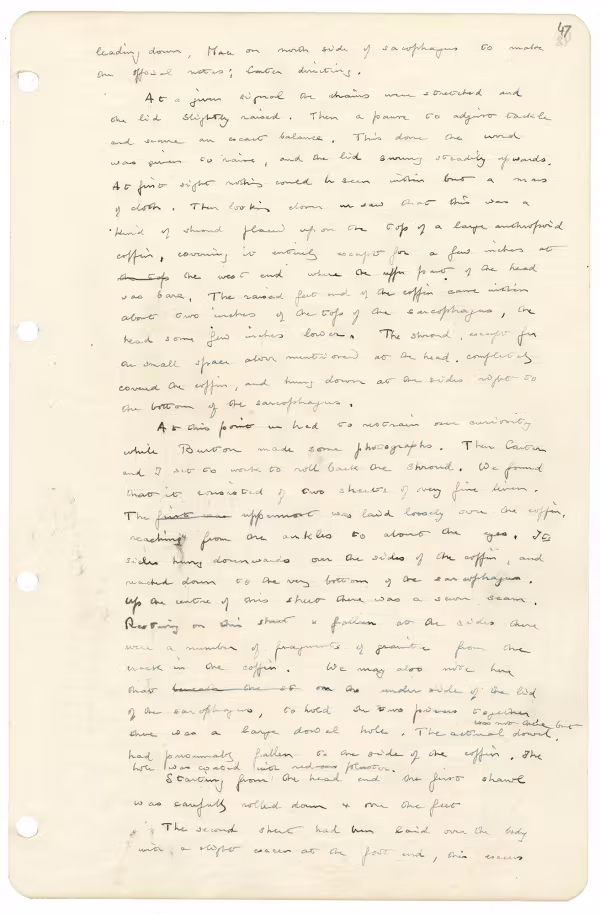 47
leading down, Mace on north side of sarcophagus to make
the official notes; Carter directing.
At a given signal the chains were stretched and
the lid slightly raised. Then a pause to adjust tackle
and secure an exact balance. This done the word
was given to raise, and the lid swung steadily upwards.
At first sight nothing could be seen within but a mass
of cloth. Then looking closer we saw that this was a
kind of shroud placed upon the top of a large anthropoid
coffin, covering it entirely except for a few inches at
the top the west end where the upper part of the head
was bare. The raised foot end of the coffin came within
about two inches of the top of the sarcophagus, the
head some few inches lower. The shroud, except for
the small space above mentioned at the head, completely
covered the coffin, and hung down at the sides right to
the bottom of the sarcophagus.
At this point we had to restrain our curiosity
while Burton made some photographs. Then Carter
and I set to work to roll back the shroud. We found
that it consisted of two sheets of very fine linen.
The first was uppermost was laid loosely over the coffin,
reaching from the ankles to about the eyes. Its
sides hung downwards over the sides of the coffin, and
reached down to the very bottom of the sarcophagus.
Up the centre of this sheet there was a sewn seam.
Resting on this sheet & fallen at the sides there
were a number of fragments of granite from the
crack in the coffin. We may also note here
that on the under side of the lid
of the sarcophagus, to hold the two pieces together
was not there but
there was a large dowel hole. The actual dowel,
had presumably fallen to the side of the coffin. The
hole was coated with red rose plaster.
Starting from the head end the first shawl
was carefully rolled down & over the feet
The second sheet had been laid over the body
with a slight excess at the foot end, this excess